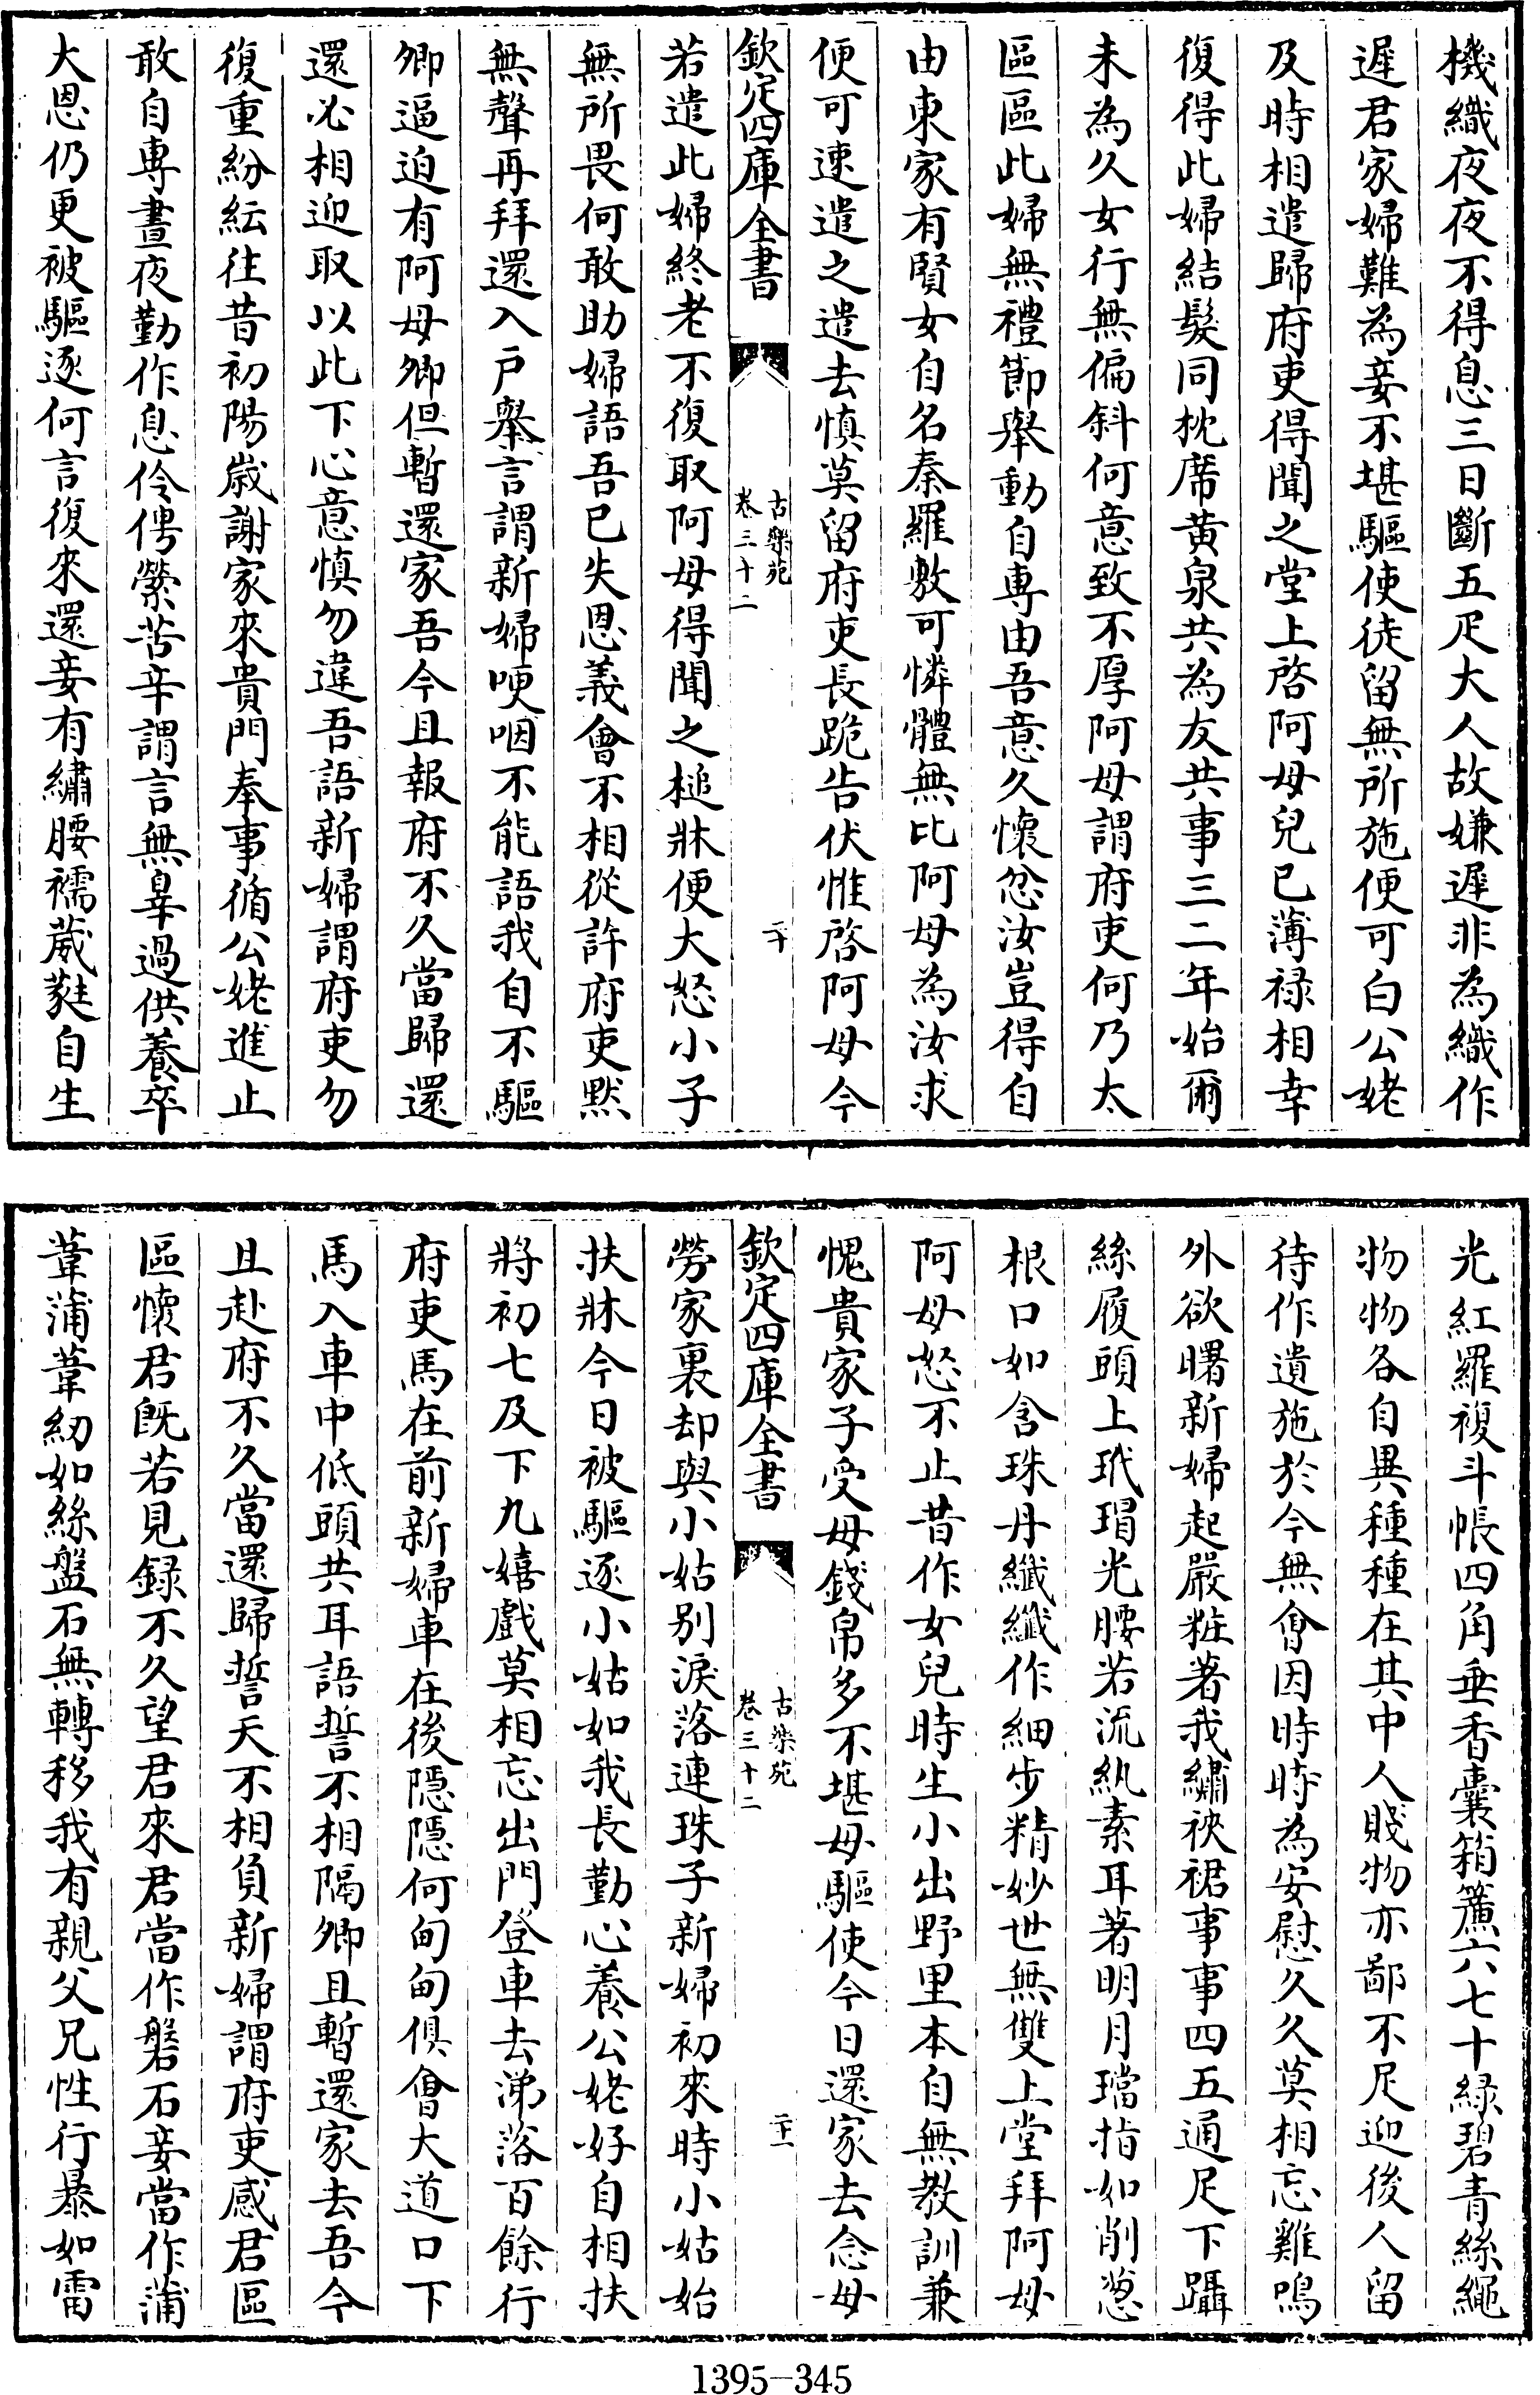 機織夜夜不得息三日斷五疋大人故嫌遲非為織作
遲君家婦難為妾不堪驅使徒留無所施便可白公姥
及時相遣歸府吏得聞之堂上啓阿母兒已薄禄相幸
復得此婦結髮同枕席黄泉共為友共事三二年始爾
未為久女行無偏斜何意致不厚阿母謂府吏何乃太
區區此婦無禮節舉動自専由吾意久懷忿汝豈得自
由東家有賢女自名秦羅敷可憐體無比阿母為汝求
便可速遣之遣去慎莫留府吏長跪告伏惟啓阿母今
欽定四庫全書
古樂苑
卷三十二
二十
若遣此婦終老不復取阿母得聞之槌牀便大怒小子
無所畏何敢助婦語吾已失恩義會不相從許府吏黙
無聲再拜還入戸舉言謂新婦哽咽不能語我自不驅
卿逼迫有阿母卿但暫還家吾今且報府不久當歸還
還必相迎取以此下心意慎勿違吾語新婦謂府吏勿
復重紛紜往昔初陽歲謝家來貴門奉事循公姥進止
敢自専晝夜勤作息伶俜縈苦辛謂言無辠過供養卒
大恩仍更被驅逐何言復來還妾有繡腰襦葳蕤自生
光紅羅複斗帳四角垂香囊箱簾六七十緑碧青絲繩
物物各自異種種在其中人賤物亦鄙不足迎後人留
待作遺施於今無會因時時為安慰久久莫相忘雞鳴
外欲曙新婦起嚴粧著我繡裌裙事事四五通足下躡
絲履頭上玳瑁光腰若流紈素耳著明月璫指如削葱
根口如含珠丹纖纖作細步精妙世無雙上堂拜阿母
阿母怒不止昔作女兒時生小出野里本自無教訓兼
愧貴家子受母錢帛多不堪母驅使今日還家去念母
欽定四庫全書
古樂苑
卷三十二
二十一
勞家裏却與小姑别淚落連珠子新婦初來時小姑始
扶牀今日被驅逐小姑如我長勤心養公姥好自相扶
將初七及下九嬉戲莫相忘出門登車去涕落百餘行
府吏馬在前新婦車在後隱隱何甸甸俱會大道口下
馬入車中低頭共耳語誓不相隔卿且暫還家去吾今
且赴府不久當還歸誓天不相負新婦謂府吏感君區
區懷君既若見録不久望君來君當作磐石妾當作蒲
葦蒲葦紉如絲盤石無轉移我有親父兄性行暴如雷
1395-345